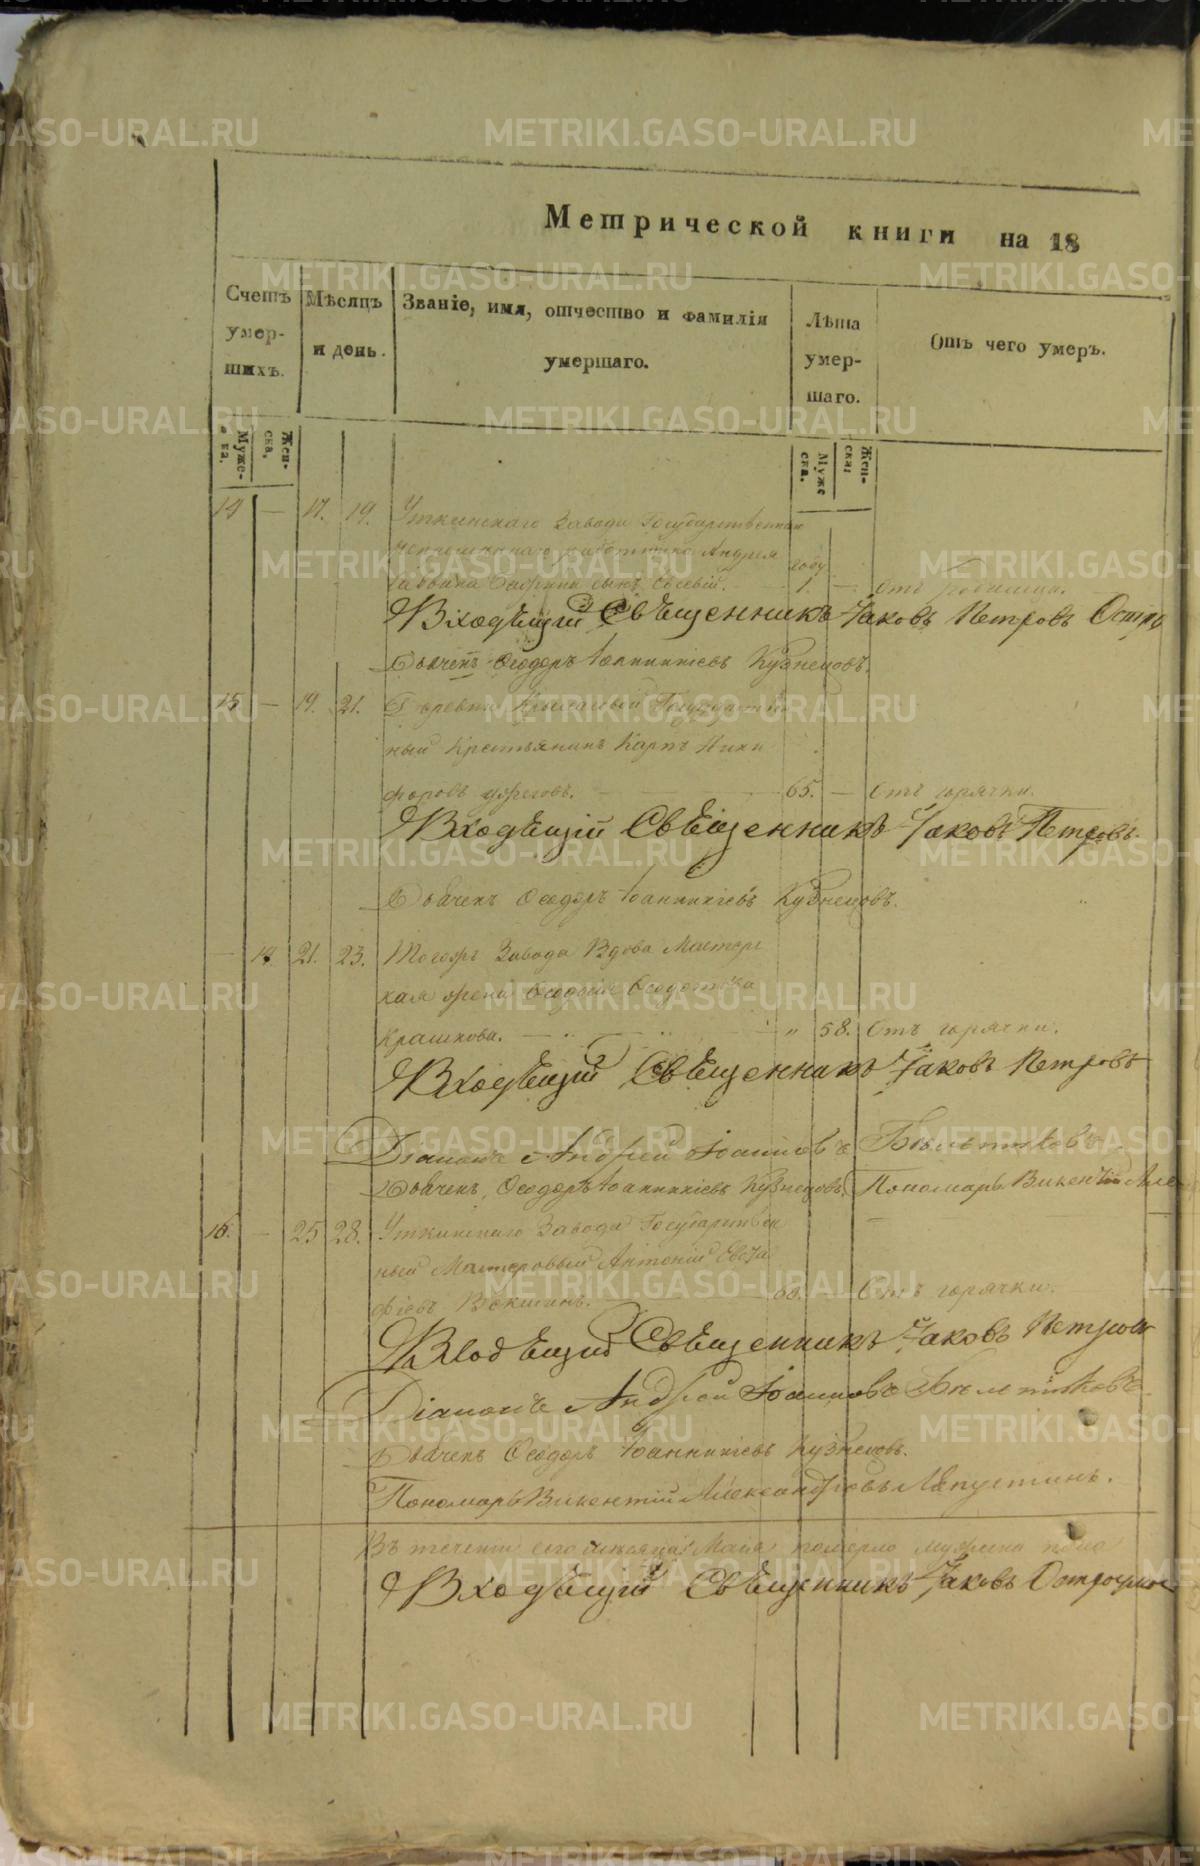 Метрической книги на 18
Счетъ умер-шихъ.
Мѣсяцъ и день.
Званіе, имя, отчество и фамилія умершаго.
Лѣта умер-шаго.
Отъ чего умеръ.
Муже-ска.
Жен-ска.
Муже ска.
Жен-ска:
14 — 17. 19. Уткинскаго Завода Государственнаго
Андрея
году
сынъ 1. — Отъ родимца.
Входѣщій Свѣщенникъ Іаковъ Петровъ Остро
Дьячекъ Ѳеодоръ Іоанникіевъ Кузнецовъ.
15 — 19. 21. Деревни Государствен
ный Крестьянинъ Карпъ Ники
форовъ 65. — Отъ горячки.
Входѣщій Свѣщенникъ Іаковъ Петровъ
Дьячекъ Ѳеодоръ Іоанникіевъ Кузнецовъ.
— 14 21. 23. Тогожъ Завода Вдова Мастерс
кая жена Ѳеодосія Ѳедотова
Крашкова. „ 58. Отъ горячки.
Входѣщій Свѣщенникъ Іаковъ Петровъ
Діаконъ Андрей Іоанновъ
Дьячекъ Ѳеодоръ Іоанникіевъ Кузнецовъ Пономарь Викентій Але
16. — 25 28. Уткинскаго Завода Государствен
ный Мастеровый Антоній
60. Отъ горячки.
Входѣщій Свѣщенникъ Іаковъ Петровъ
Діаконъ Андрей Іоанновъ
Дьячекъ Ѳеодоръ Іоанникіевъ Кузнецовъ.
Пономарь Викентій Александровъ Лапустинъ.
Въ теченіи сего мѣсяца Маія померло мужеска пола
Входѣщій Свѣщенникъ Іаковъ
METRIKI.GASO-URAL.RU